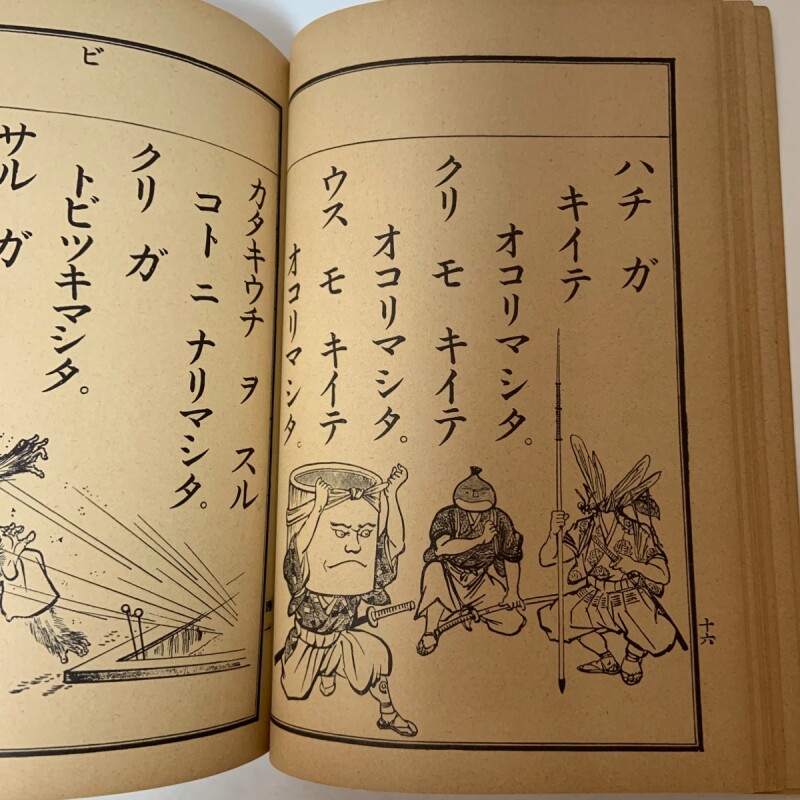 ハチ ガ
キイテ
オコリマシタ。
クリ モ キイテ
オコリマシタ。
ウス モ キイテ
オコリマシタ。
十六
ビ
カタキウチ ヲ スル
コト ニ ナリマシタ。
クリ ガ
トビツキマシタ。
サル ガ